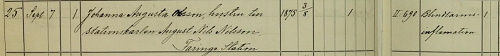 25 Sept 7 1 Johanna Augusta Olsson, hustru till 1875 3/8 1 II. 690 Blindtarms-
stationskarlen August Nils Nilsson inflamation
Taringe Station